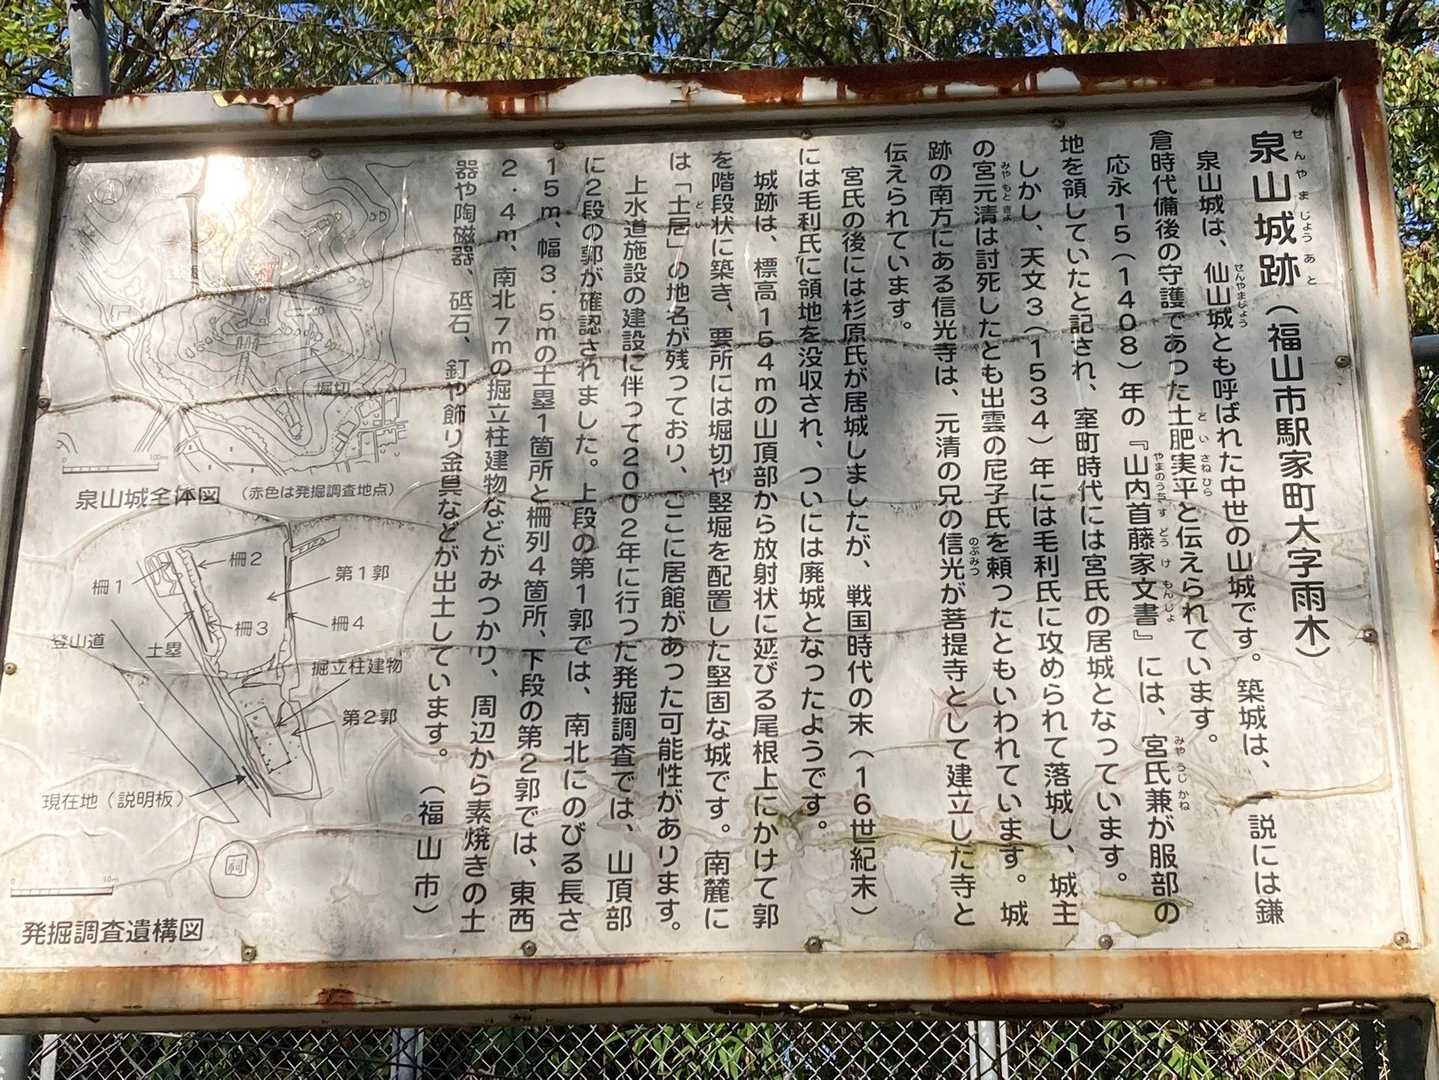 泉山城跡（福山市駅家町大字雨木）
せんやまじょうあと
泉山城は、仙山城とも呼ばれた中世の山城です。築城は、一説には鎌
せんやまじょう
倉時代備後の守護であった土肥実平と伝えられています。
どいさねひら
応永１５（１４０８）年の『山内首藤家文書』には、宮氏兼が服部の
やまのうちすどうけもんじょ
みやうじかね
地を領していたと記され、室町時代には宮氏の居城となっています。
しかし、天文３（１５３４）年には毛利氏に攻められて落城し、城主
の宮元清は討死したとも出雲の尼子氏を頼ったともいわれています。城
みやもときよ
跡の南方にある信光寺は、元清の兄の信光が菩提寺として建立した寺と
のぶみつ
伝えられています。
宮氏の後には杉原氏が居城しましたが、戦国時代の末（１６世紀末）
には毛利氏に領地を没収され、ついには廃城となったようです。
城跡は、標高１５４ｍの山頂部から放射状に延びる尾根上にかけて郭
を階段状に築き、要所には堀切や竪堀を配置した堅固な城です。南麓に
は「土居」の地名が残っており、ここに居館があった可能性があります。
どい
上水道施設の建設に伴って２００２年に行った発掘調査では、山頂部
に２段の郭が確認されました。上段の第１郭では、南北にのびる長さ
１５ｍ、幅３．５ｍの土塁１箇所と柵列４箇所、下段の第２郭では、東西
２．４ｍ、南北７ｍの掘立柱建物などがみつかり、周辺から素焼きの土
器や陶磁器、砥石、釘や飾り金具などが出土しています。
（福山市）
堀切
100m
泉山城全体図（赤色は発掘調査地点）
柵２
柵１
第１郭
柵３
柵４
登山道
土塁
掘立柱建物
第２郭
現在地（説明板）
祠
0
10m
発掘調査遺構図